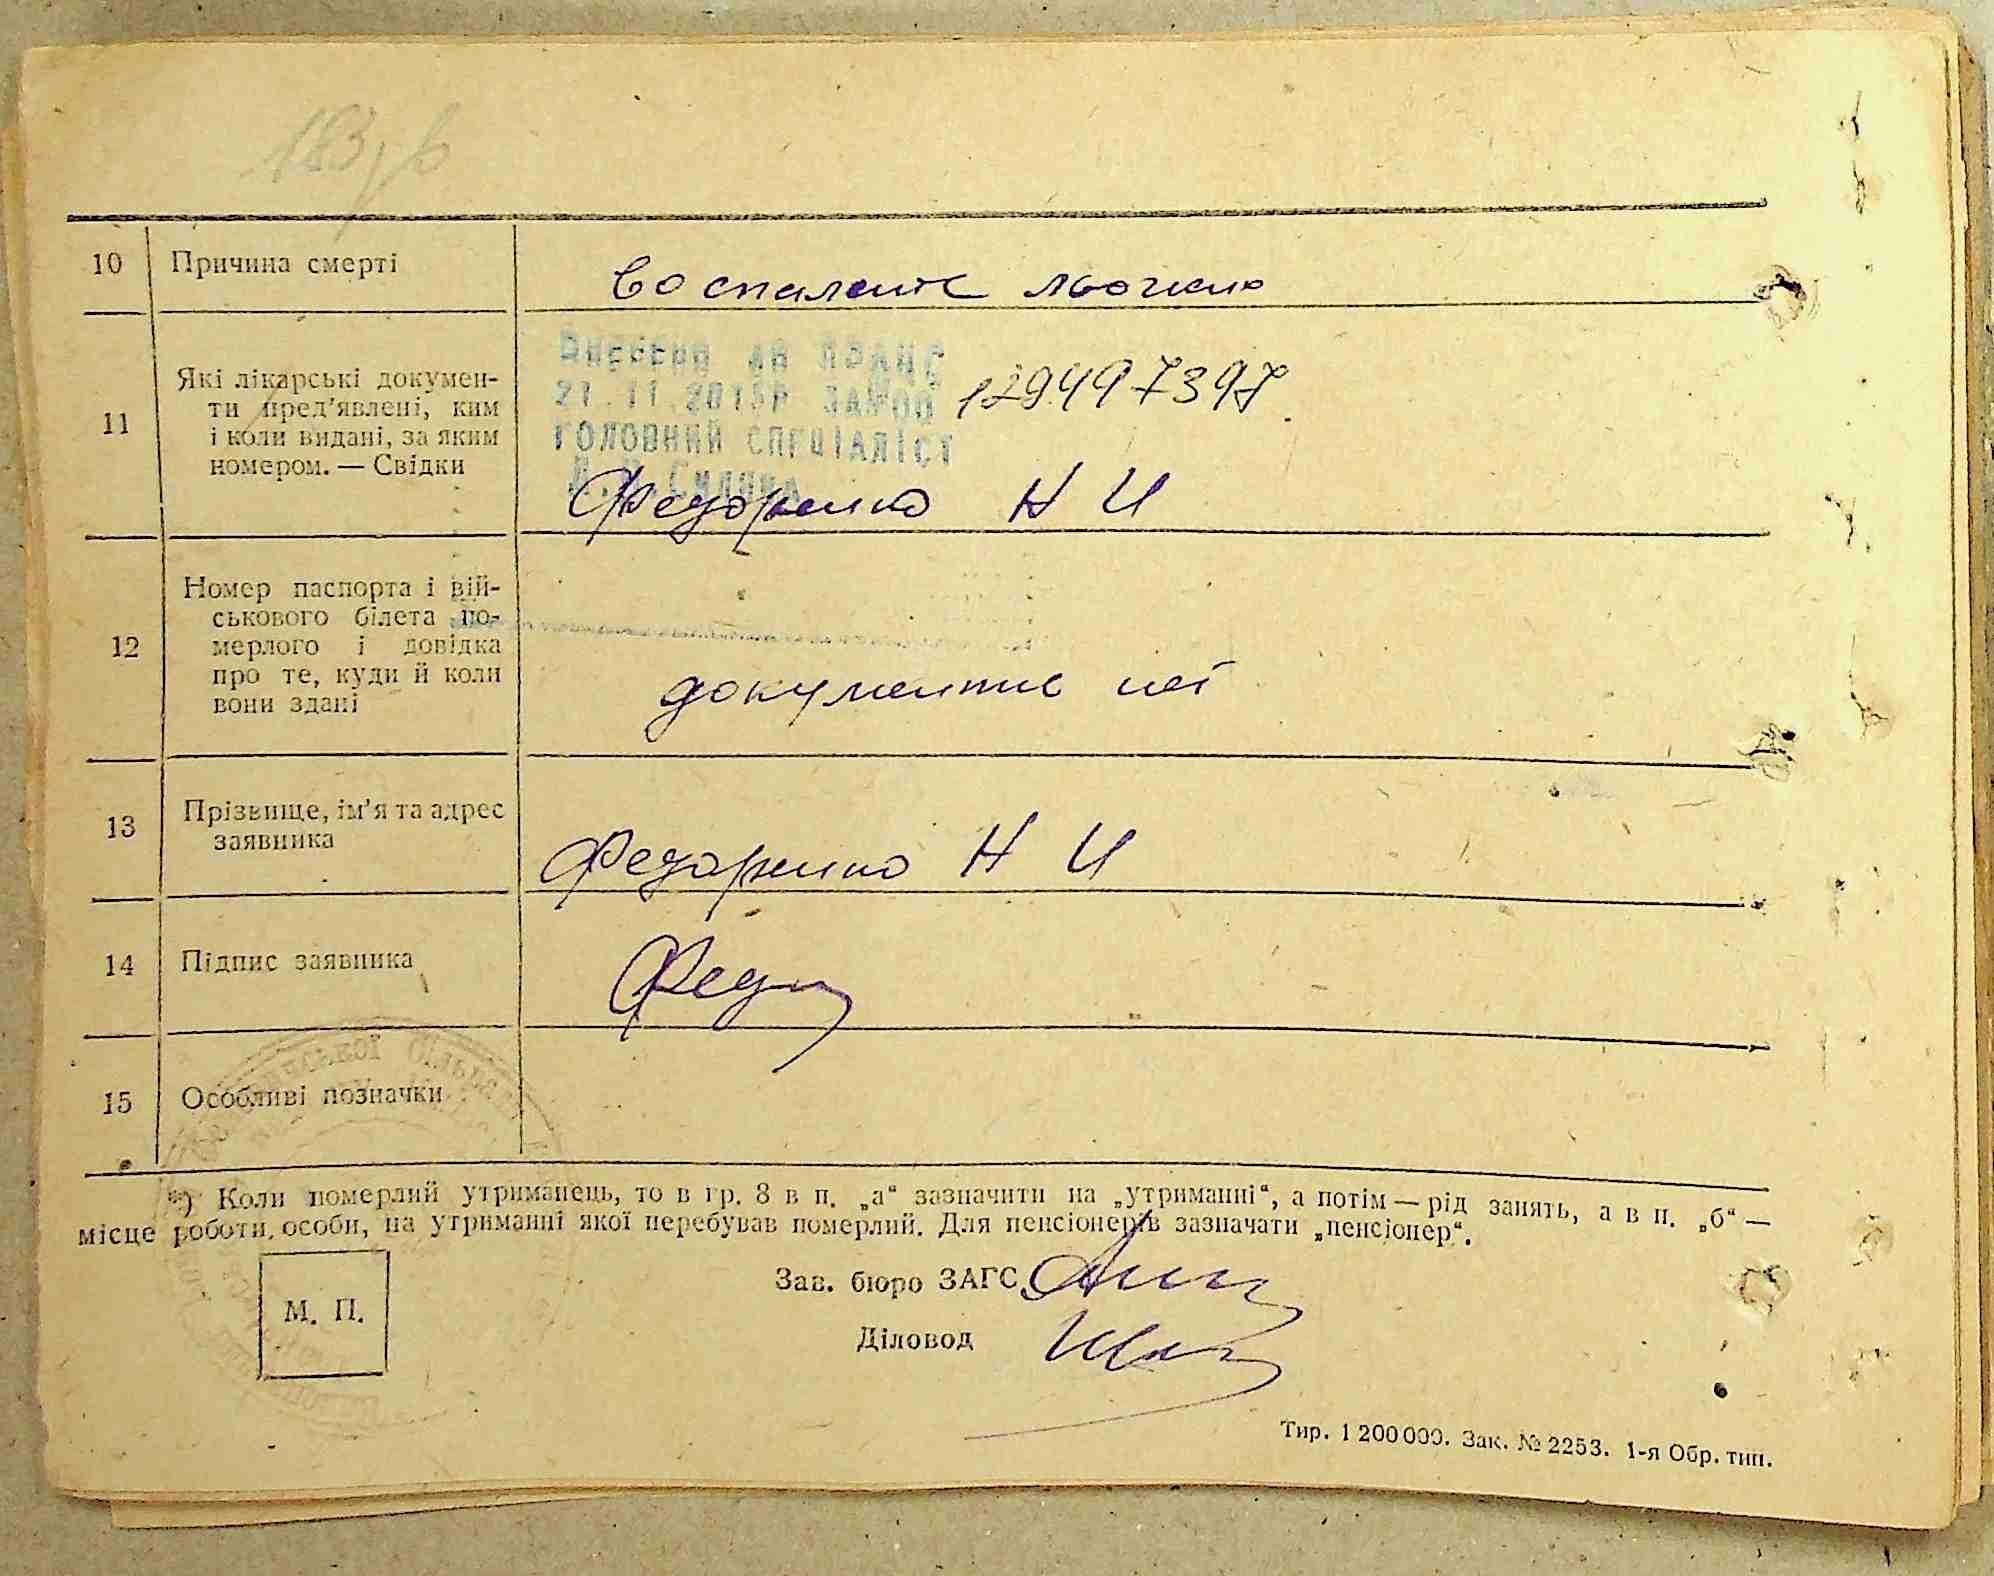 10 Причина смерті
Воспаление льогких
Внесено до ДРАЦС
21.11.2013р ЗАМОО 129497397
головний спеціаліст
11 Які лікарські докумен-
ти пред’явлені, ким
і коли видані, за яким
номером. — Свідки
Федоренко Н И
12 Номер паспорта і вій-
ськового білета по-
мерлого і довідка
про те, куди й коли
вони здані
документів неі
13 Прізвище, ім’я та адрес
заявника
Федоренко Н И
14 Підпис заявника
15 Особливі позначки
*) Коли померлий утриманець, то в гр. 8 в п. „а“ зазначити на „утриманні“, а потім — рід занять, а в п. „б“ —
місце роботи, особи, на утриманні якої перебував померлий. Для пенсіонерів зазначати „пенсіонер“.
Зав. бюро ЗАГС
М. П.
Діловод
Тир. 1 200 000. Зак. № 2253. 1-я Обр. тип.